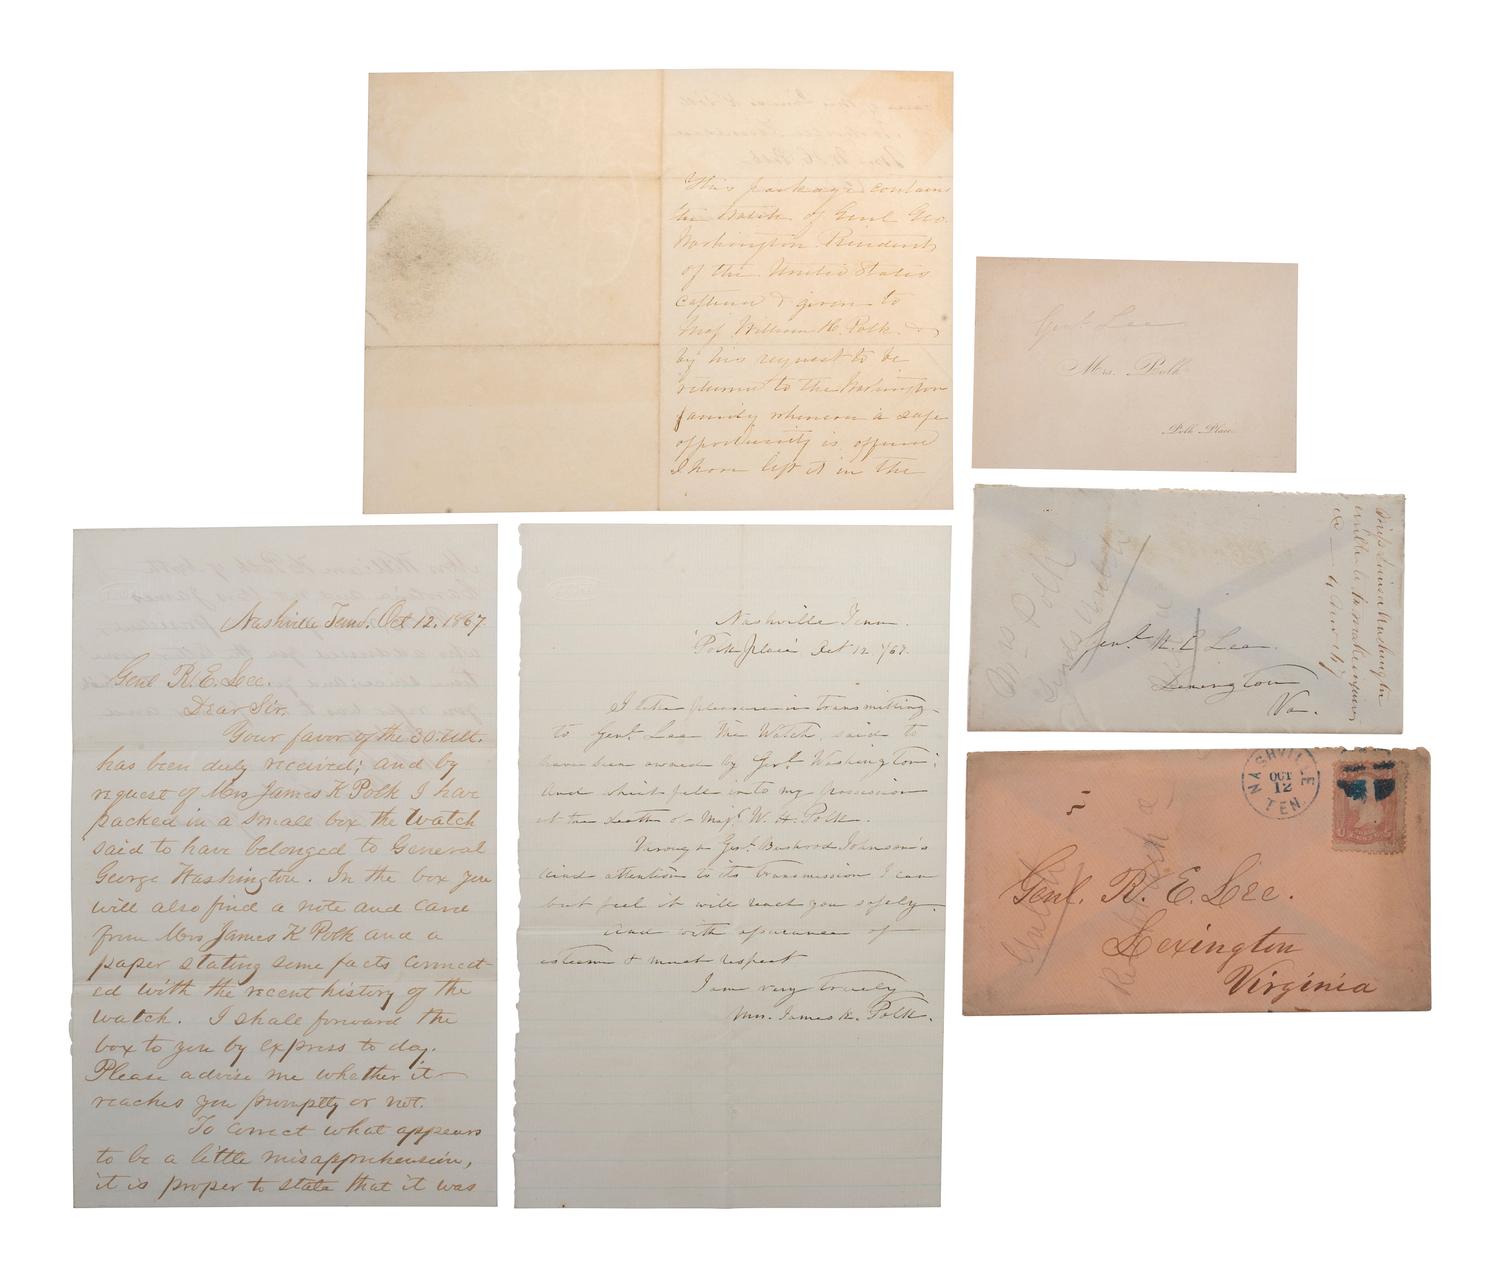 This package contains
the watch of Genl Geo.
Washington President
of the United States
captured & given to
Maj William H. Polk &
by his request to be
returned to the Washington
family whenever a safe
opportunity is offered
I have left it in the
Genl. Lee
Mrs. Polk
Polk Place
Mrs Polk
Genl. R. E. Lee
Lexington
Va.
Miss Louisa Washington
to make inquiries
NASHVILLE
OCT
12
TEN.
Genl. R. E. Lee.
Lexington
Virginia
Nashville Tenn. Oct 12. 1867
Genl R. E. Lee.
Dear Sir,
Your favor of the 30. ult.
has been duly received; and by
request of Mrs James K Polk I have
packed in a small box the watch
said to have belonged to General
George Washington. In the box you
will also find a note and card
from Mrs James K Polk and a
paper stating some facts connect-
ed with the recent history of the
watch. I shall forward the
box to you by express to day.
Please advise me whether it
reaches you promptly or not.
To correct what appears
to be a little misapprehension,
it is proper to state that it was
Nashville Tenn.
Polk place Oct 12 /67.
I take pleasure in transmitting
to Genl. Lee the Watch, said to
have been owned by Genl. Washington;
and which fell into my possession
at the death of Majr. W. H. Polk.
Through Genl. Bushrod Johnson's
kind attention to its transmission I can
but feel it will reach you safely.
And with assurance of
esteem & most respect
I am very truly
Mrs. James K. Polk.